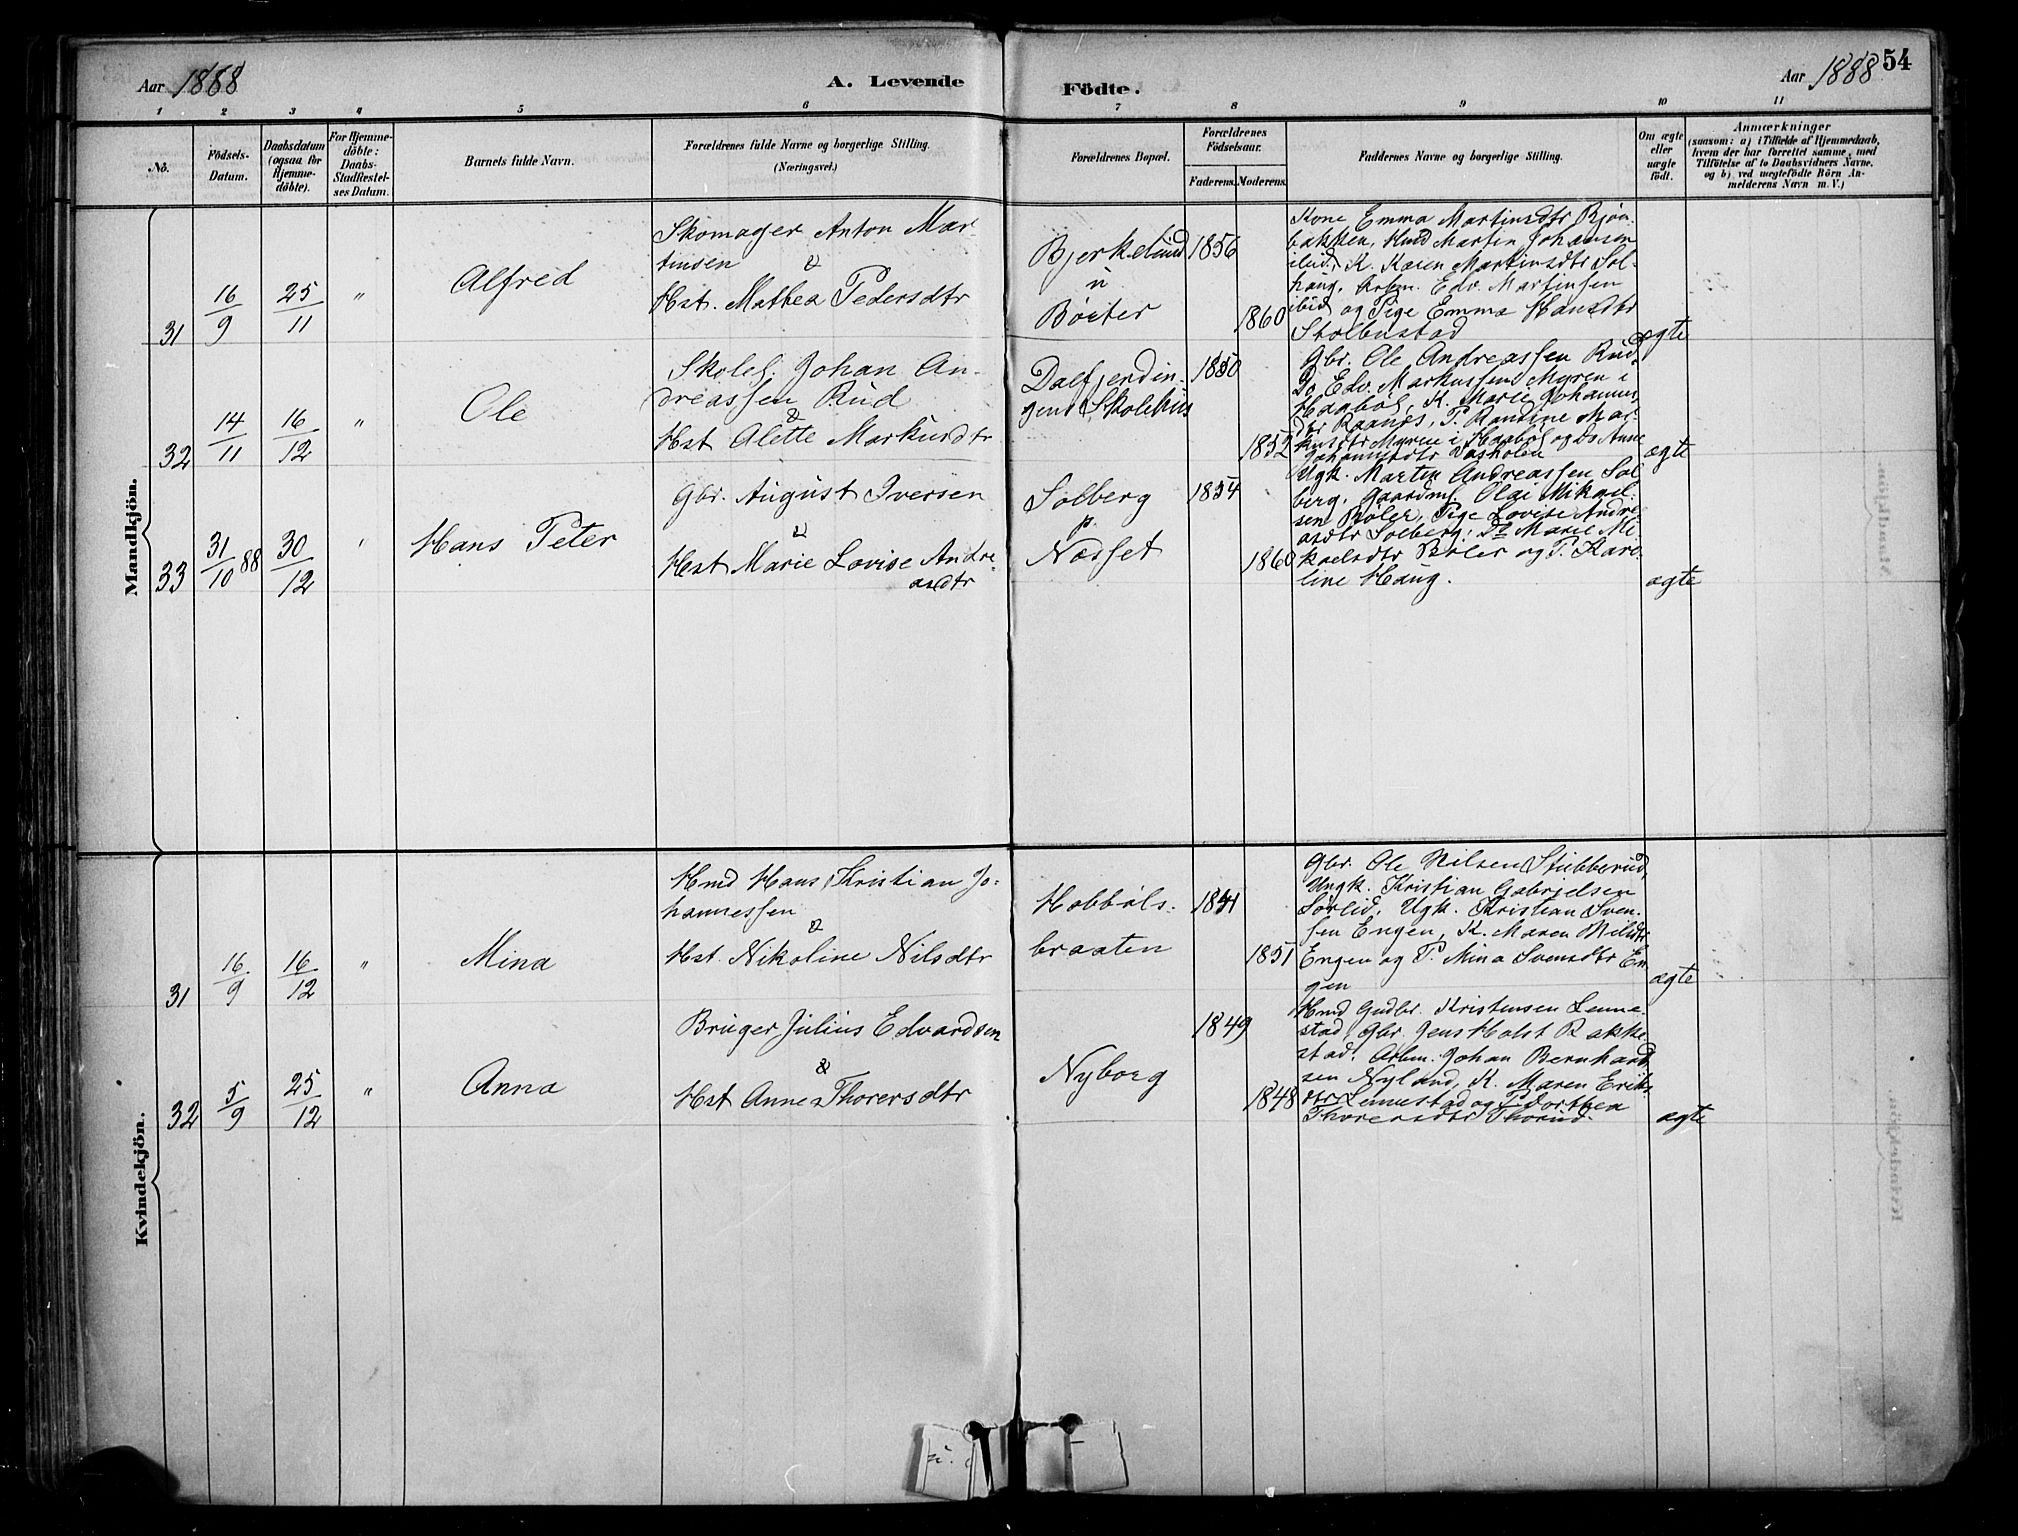 Aar 1888
A. Levende
Födte.
Aar 1888
54
1 2 3 4 5 6 7 8 9 10 11
No.
Födsels-
Datum.
Daabsdatum
(ogsaa for
Hjemme-
döbte).
For Hjemme-
döbte:
Daabs-
Stadfæstel-
ses Datum.
Barnets fulde Navn.
Forældrenes fulde Navne og borgerlige Stilling.
(Næringsvei.)
Forældrenes Bopæl.
Forældrenes
Födselsaar.
Faderens. Moderens.
Faddernes Navne og borgerlige Stilling.
Om ægte
eller
uægte
födt.
Anmærkninger
(saasom: a) i Tilfælde af Hjemmedaab,
hvem der har forrettet samme, med
Tilföielse af to Daabsvidners Navne,
og b) ved uægtefödte Börn An-
melderens Navn m. V.)
Mandkjön.
31
16/9
25/11
"
Alfred
Skomager Anton Mar-
tinsen &
Hst. Mathea Pedersdtr
Bjerkelund
u
Böiter
1856
1860
Kone Emma Martinsdtr Bjön-
bakken, Hmd Martin Johansen
ibid, K. Karen Martinsdtr Sol-
haug, Arbm. Edv. Martinsen
ibid og Pige Emma Hansdtr
Stolbustad
ægte
32
14/11
16/12
"
Ole
Skolel. Johan An-
dreassen Rud
&
Hst Alette Markusdtr
Dalfjerdin-
gens Skolehus
1850
1852
Gbr. Ole Andreassen Rud,
Do Edv. Markussen Myren i
Haabøl, K. Marie Johannes
dtr Raanes, P. Randine Mar-
kusdtr Myren i Haabøl og Do Anne
Johannesdtr
ægte
33
31/10 88
30/12
"
Hans Peter
Gbr. August Iversen
&
Hst Marie Lovise Andre-
asdtr
Solberg
p.
Næsset
1854
1860
Ugk. Martin Andreassen Sol
berg, Gaardmd. Olai Mikael-
sen Bøler, Pige Lovise Andre-
asdtr Solberg; Do Marie Mi-
kaelsdtr Bøler og P. Karo-
line Haug.
ægte
Kvindekjön.
31
16/9
16/12
"
Mina
Hmd Hans Kristian Jo-
hannessen
&
Hst. Nikoline Nilsdtr
Hobböls-
braaten
1841
1851
Gbr. Ole Nilsen Stubberud,
Ungk. Kristian Gabrielsen
Sörlid, Ugk. Kristian Sven-
sen Engen, K. Maren Nilsdtr
Engen og P. Mina Svensdtr En-
gen
ægte
32
5/9
25/12
"
Anna
Bruger Julius Edvardsen
&
Hst Anne Thorersdtr
Nyborg
1849
1848
Hmd Gudbr. Kristensen Lenne-
stad, Gbr. Jens Holst Rakke-
stad, Arbm. Johan Bernhard-
sen Nyland, K. Maren Eriks-
dtr Lennestad og P. Dorthea
Thorersdtr Thorud.
ægte